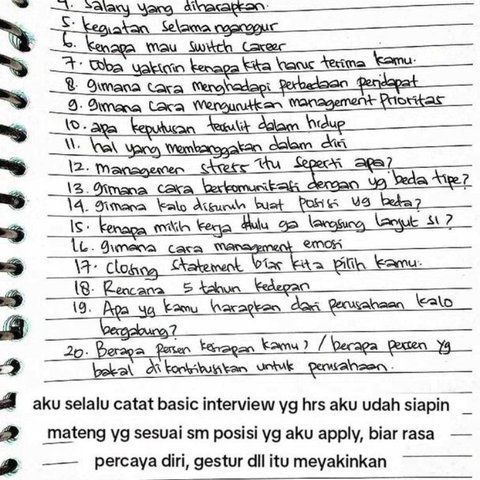 4. Salary yang diharapkan.
5. kegiatan selama nganggur
6. kenapa mau switch career
7. coba yakinin kenapa kita harus terima kamu.
8. gimana cara menghadapi perbedaan pendapat
9. gimana cara mengurutkan management prioritas
10. apa keputusan tersulit dalam hidup
11. hal yang membanggakan dalam diri
12. managemen stress itu seperti apa?
13. gimana cara berkomunikasi dengan yg beda tipe?
14. gimana kalo disuruh buat posisi yg beda?
15. kenapa milih kerja dulu ga langsung lanjut s1?
16. gimana cara management emosi
17. closing statement biar kita pilih kamu.
18. Rencana 5 tahun kedepan
19. Apa yg kamu harapkan dari perusahaan kalo
bergabung?
20. Berapa persen kesiapan kamu, / berapa persen yg
bakal di kontribusikan untuk perusahaan.
aku selalu catat basic interview yg hrs aku udah siapin
mateng yg sesuai sm posisi yg aku apply, biar rasa
percaya diri, gestur dll itu meyakinkan